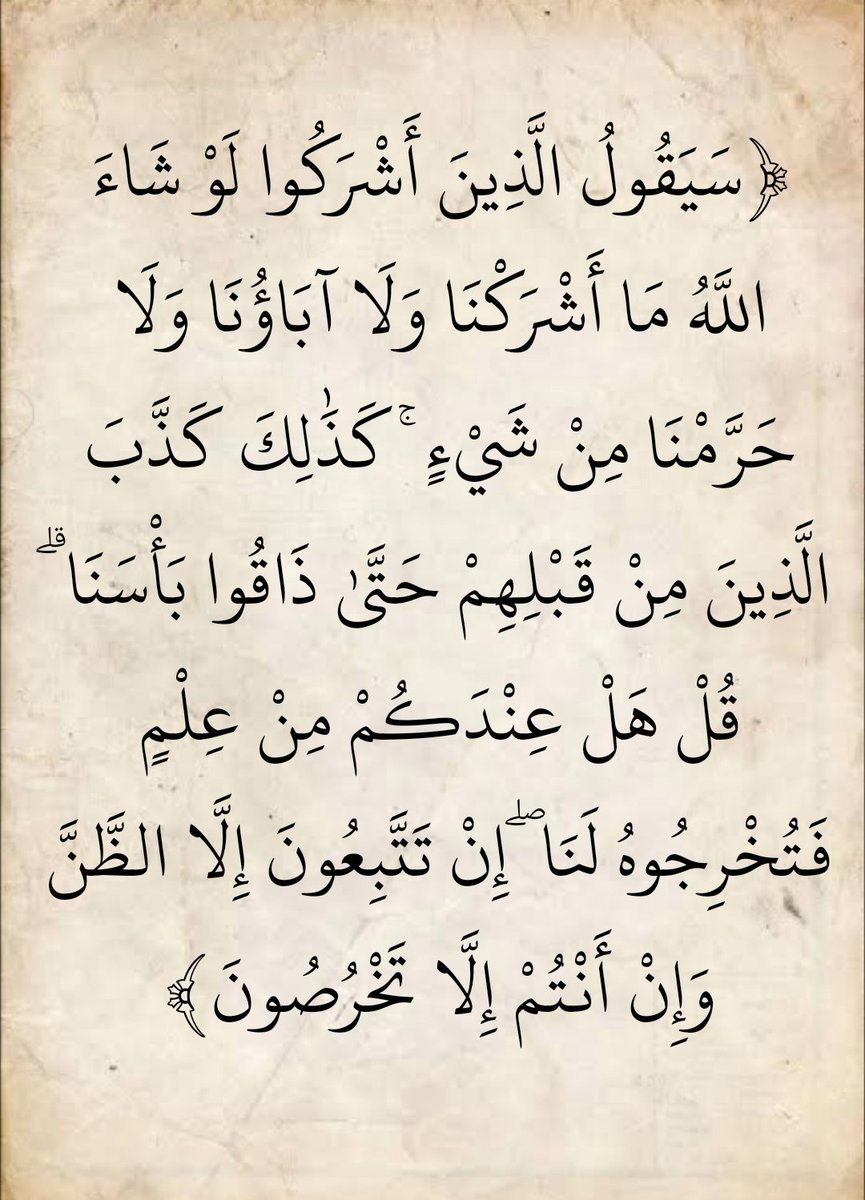 ﴿سَيَقُولُ الَّذِينَ أَشْرَكُوا لَوْ شَاءَ
اللَّهُ مَا أَشْرَكْنَا وَلَا آبَاؤُنَا وَلَا
حَرَّمْنَا مِنْ شَيْءٍ ۚ كَذَٰلِكَ كَذَّبَ
الَّذِينَ مِنْ قَبْلِهِمْ حَتَّىٰ ذَاقُوا بَأْسَنَا ۗ
قُلْ هَلْ عِنْدَكُمْ مِنْ عِلْمٍ
فَتُخْرِجُوهُ لَنَا ۖ إِنْ تَتَّبِعُونَ إِلَّا الظَّنَّ
وَإِنْ أَنْتُمْ إِلَّا تَخْرُصُونَ﴾